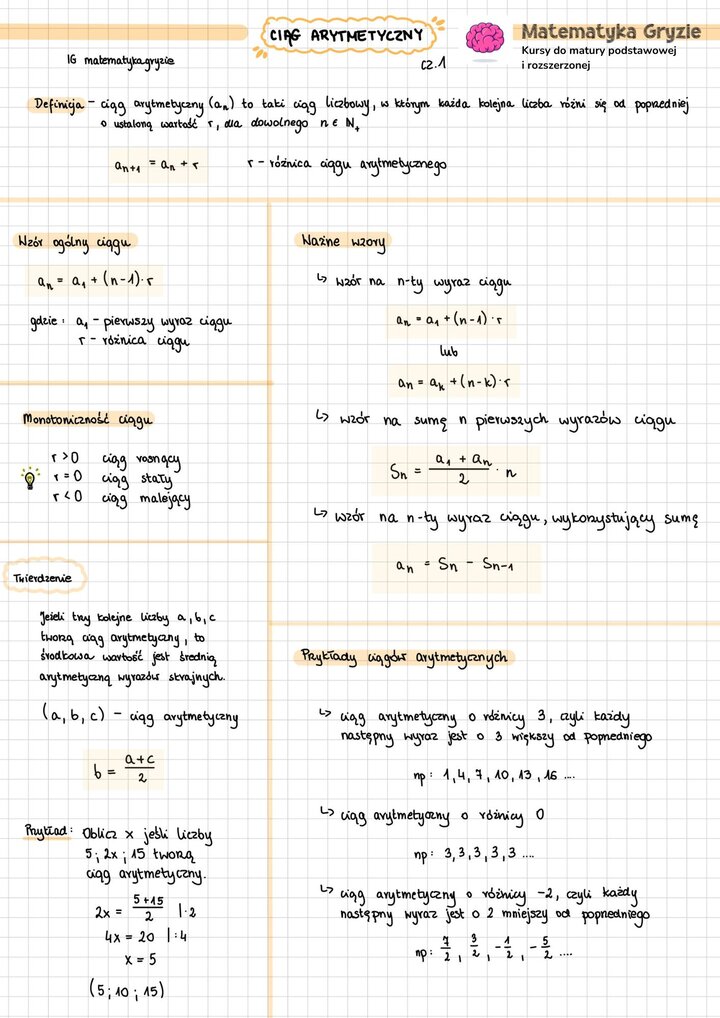 CIĄG ARYTMETYCZNY
cz.1
Matematyka Gryzie
Kursy do matury podstawowej
i rozszerzonej
IG matematykagryzie
Definicja - ciąg arytmetyczny (aₙ) to taki ciąg liczbowy, w którym każda kolejna liczba różni się od poprzedniej
o ustaloną wartość r, dla dowolnego n ∈ N₊
aₙ₊₁ = aₙ + r
r - różnica ciągu arytmetycznego
Wzór ogólny ciągu
aₙ = a₁ + (n-1)·r
gdzie: a₁ - pierwszy wyraz ciągu
r - różnica ciągu
Monotoniczność ciągu
r > 0 ciąg rosnący
r = 0 ciąg stały
r < 0 ciąg malejący
Twierdzenie
Jeżeli trzy kolejne liczby a, b, c
tworzą ciąg arytmetyczny, to
środkowa wartość jest średnią
arytmetyczną wyrazów skrajnych.
(a, b, c) - ciąg arytmetyczny
b = a+c/2
Przykład: Oblicz x jeśli liczby
5; 2x; 15 tworzą
ciąg arytmetyczny.
2x = 5+15/2 |·2
4x = 20 |:4
x = 5
(5; 10; 15)
Ważne wzory
↳ wzór na n-ty wyraz ciągu
aₙ = a₁ + (n-1)·r
lub
aₙ = aₖ + (n-k)·r
↳ wzór na sumę n pierwszych wyrazów ciągu
Sₙ = a₁ + aₙ/2 · n
↳ wzór na n-ty wyraz ciągu, wykorzystujący sumę
aₙ = Sₙ - Sₙ₋₁
Przykłady ciągów arytmetycznych
↳ ciąg arytmetyczny o różnicy 3, czyli każdy
następny wyraz jest o 3 większy od poprzedniego
np: 1, 4, 7, 10, 13, 16 ....
↳ ciąg arytmetyczny o różnicy 0
np: 3, 3, 3, 3, 3 ....
↳ ciąg arytmetyczny o różnicy -2, czyli każdy
następny wyraz jest o 2 mniejszy od poprzedniego
np: 7/2, 3/2, -1/2, -5/2 ....